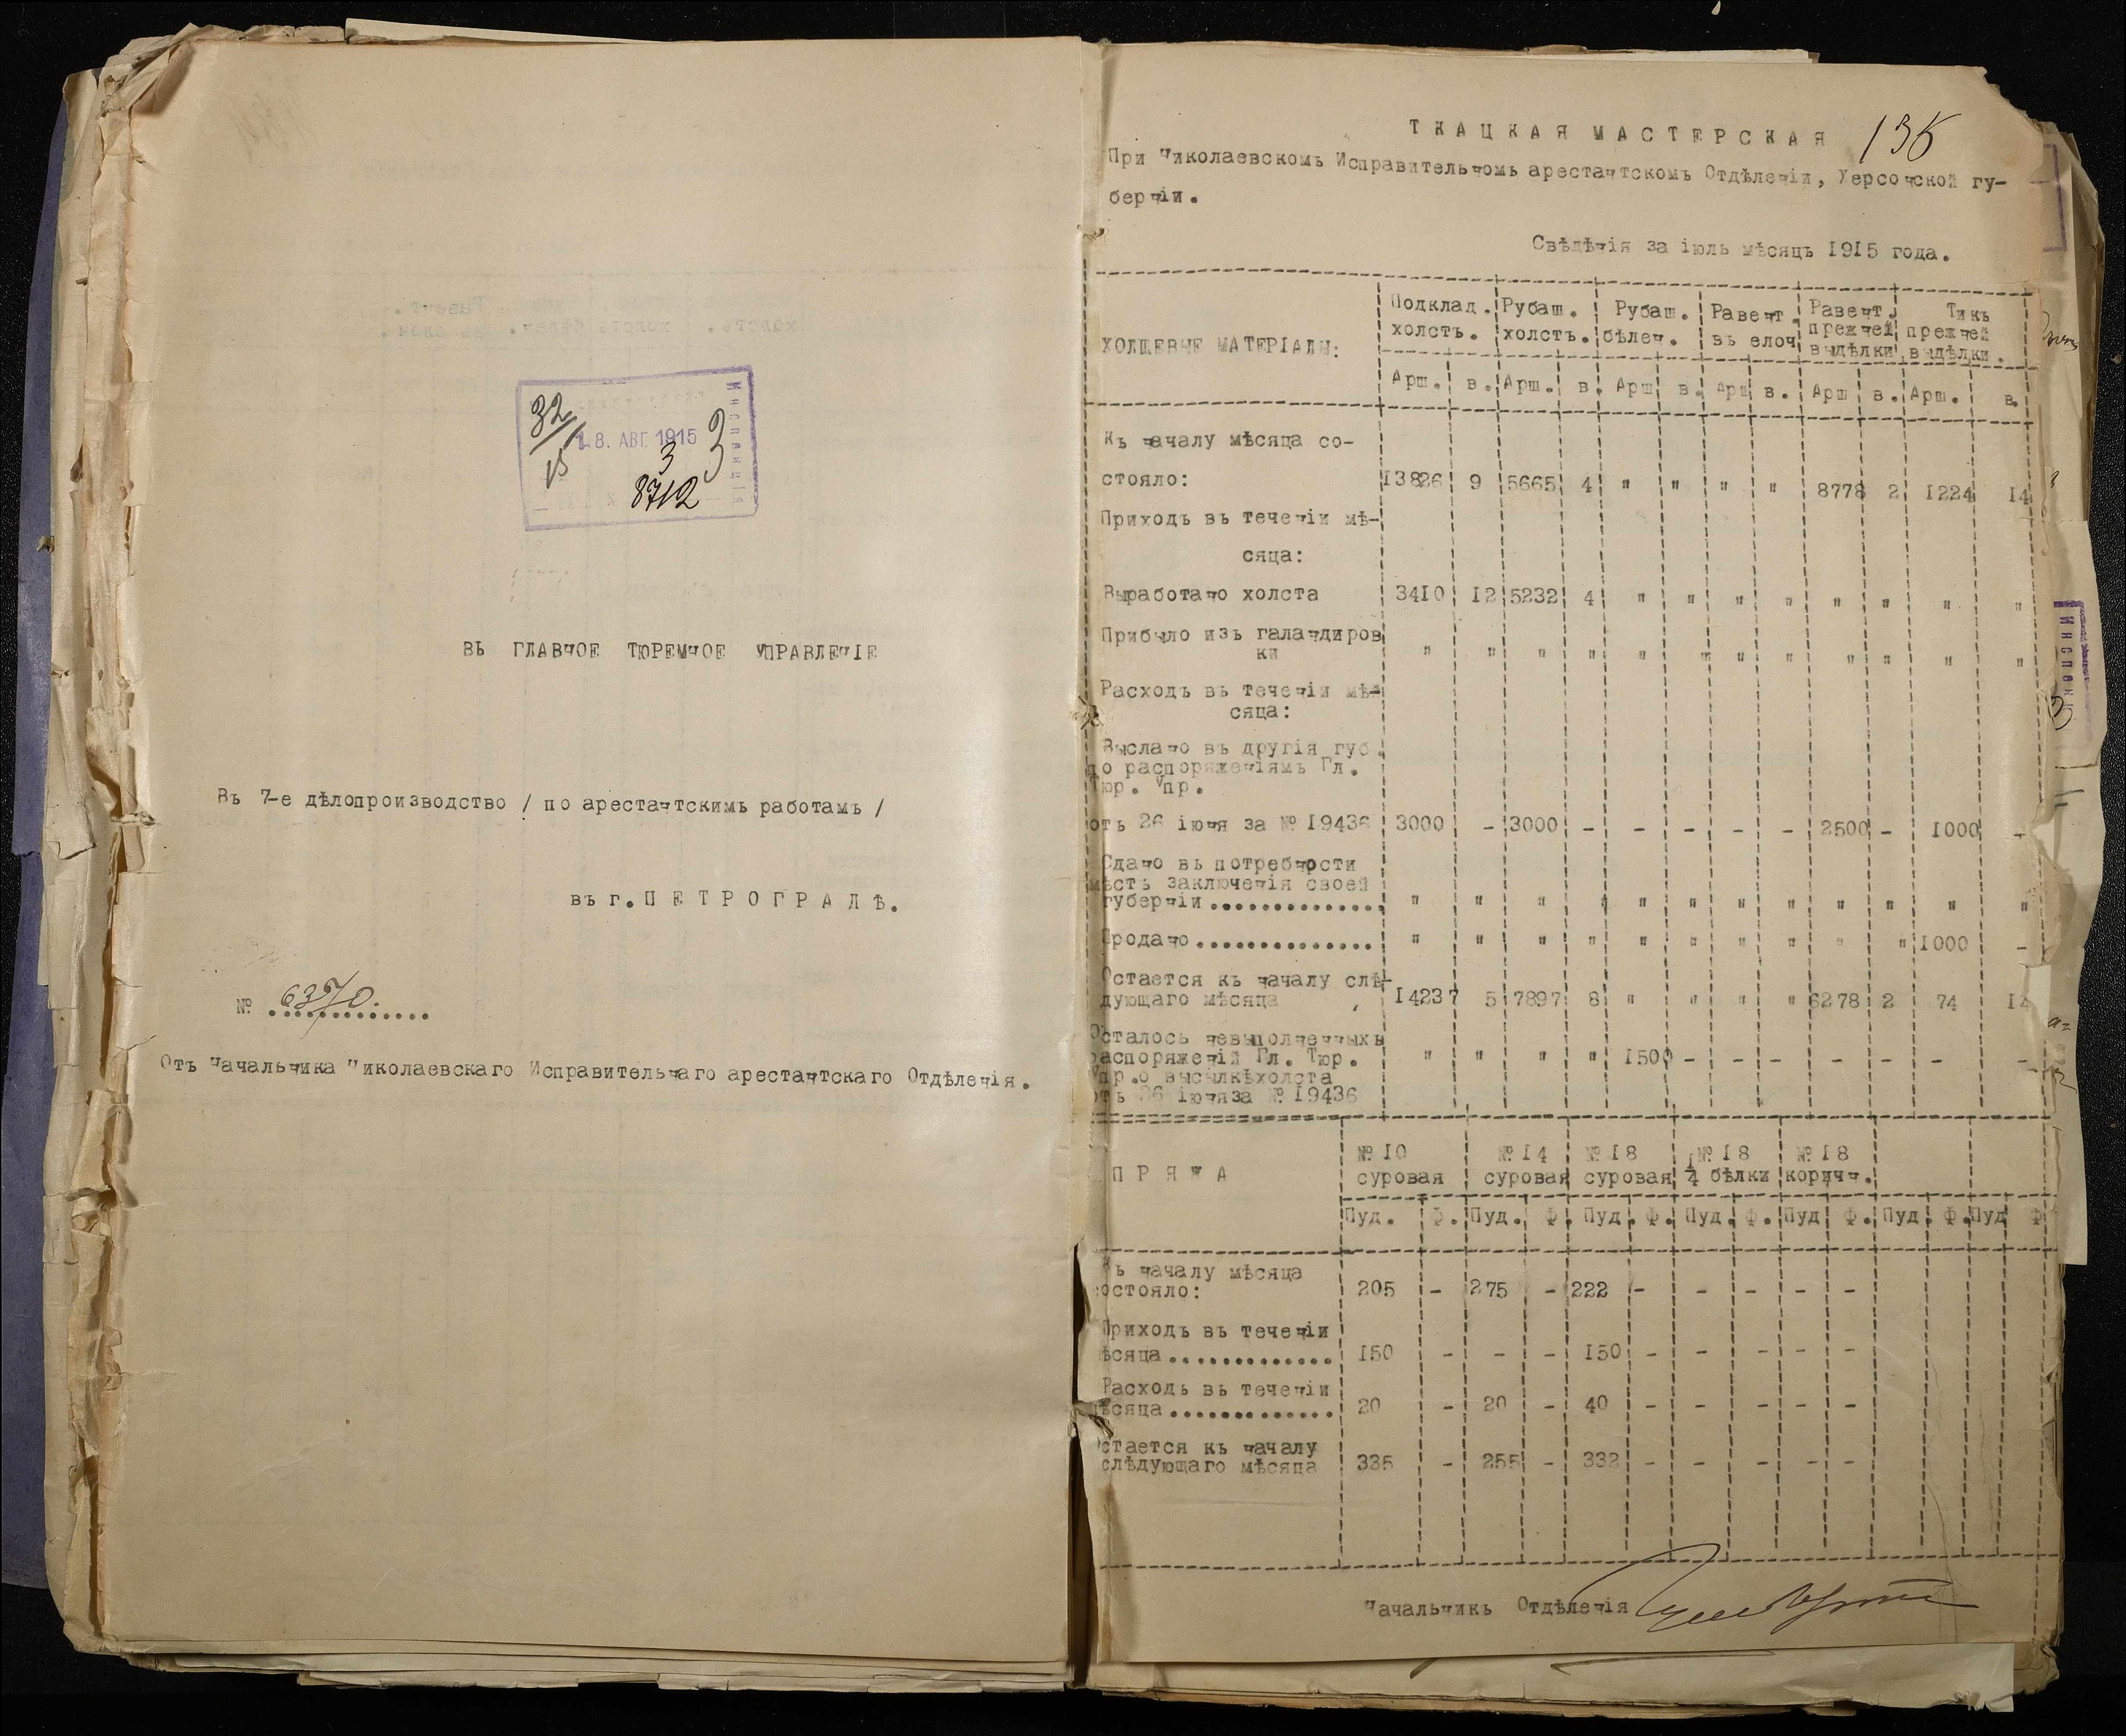 32/15
18. АВГ. 1915
3
3
8712
ВЪ ГЛАВНОЕ ТЮРЕМНОЕ УПРАВЛЕНІЕ
Въ 7-е дѣлопроизводство / по арестантскимъ работамъ /
въ г. ПЕТРОГРАДѢ.
№ 6370.
Отъ Начальника Николаевскаго Исправительнаго арестантскаго Отдѣленія.
ТКАЦКАЯ МАСТЕРСКАЯ
При Николаевскомъ Исправительномъ арестантскомъ Отдѣленіи, Херсонской гу-
берніи.
Свѣдѣнія за іюль мѣсяцъ 1915 года.
ХОЛЩЕВЫЕ МАТЕРІАЛЫ: Подклад. Рубаш. Рубаш. Равент. Равент. Тикъ
холстъ. холстъ. бѣлен. въ елоч прежней прежней
выдѣлки выдѣлки.
Арш. в. Арш. в. Арш в. Арш в. Арш в. Арш. в.
Къ началу мѣсяца со-
стояло: 13826 9 5665 4 " " " " 8778 2 1224 14
Приходъ въ теченіи мѣ-
сяца:
Выработано холста 3410 12 5232 4 " " " " " " " "
Прибыло изъ галандиров
ки " " " " " " " " " " " "
Расходъ въ теченіи мѣ-
сяца:
Выслано въ другія губ.
по распоряженіямъ Гл.
Тюр. Упр.
отъ 26 іюня за № 19436 3000 - 3000 - - - - - 2500 - 1000 -
Сдано въ потребности
мѣстъ заключенія своей
губерніи.............. " " " " " " " " " " " "
Продано.............. " " " " " " " " " " 1000 -
Остается къ началу слѣ-
дующаго мѣсяца 14237 5 7897 8 " " " " 6278 2 74 14
Осталось невыполненныхъ
распоряженій Гл. Тюр. " " " " 1500 - - - - - - -
Упр. о высылкѣ холста
отъ 26 іюня за № 19436
ПРЯЖА № 10 № 14 № 18 № 18 № 18
суровая суровая суровая 1/4 бѣлки коричн.
Пуд. Ф. Пуд. Ф. Пуд. Ф. Пуд. Ф. Пуд Ф. Пуд. Ф. Пуд Ф
Къ началу мѣсяца
состояло: 205 - 275 - 222 - - - - -
Приходъ въ теченіи
мѣсяца............. 150 - - - 150 - - - - -
Расходъ въ теченіи
мѣсяца............. 20 - 20 - 40 - - - - -
Остается къ началу
слѣдующаго мѣсяца 335 - 255 - 332 - - - - -
Начальникъ Отдѣленія